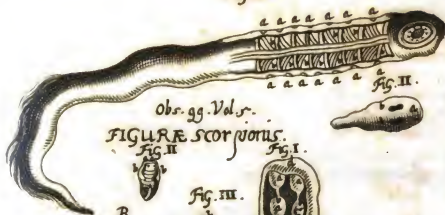 a a a a a a a
a a a a a a a
Fig. II.
Obs. 99. Vol. 5.
FIGURÆ Scorpionis.
Fig. II Fig. I.
b b
Fig. III.
B b